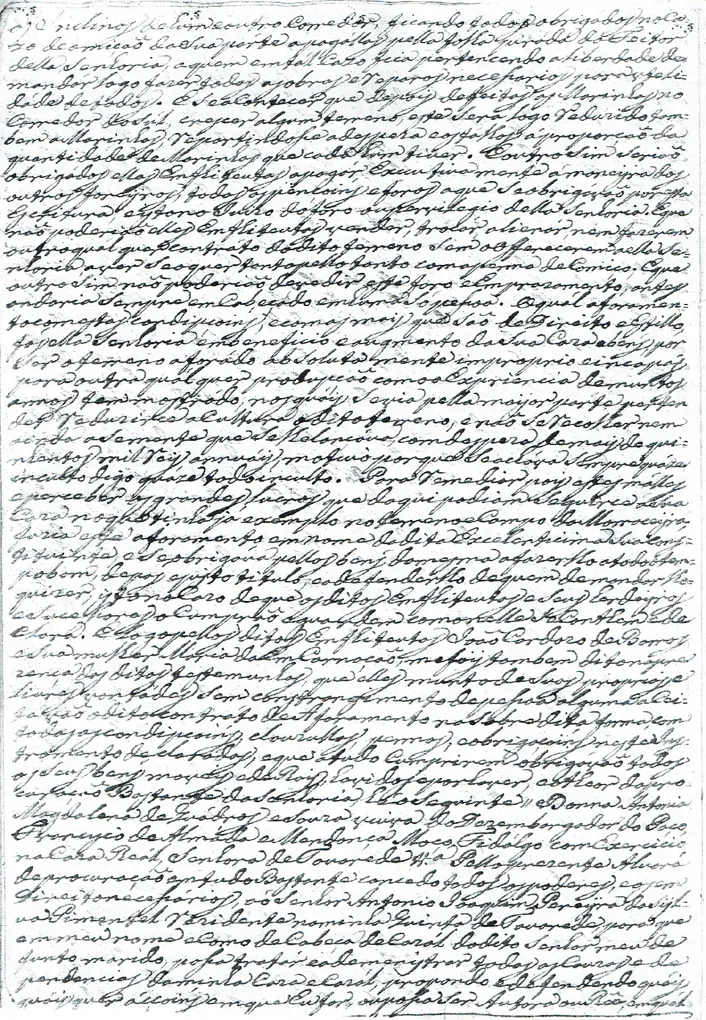 de hum e outro Comedor, ficando todos obrigados no ca-
zo de omição da sua parte a pagallos pella justa jurada do Feitor
della Senhoria, a quem em tal Cazo fica pertencendo a liberdade de
mandar logo fazer todas as obras e reparos necessarios para uteli-
dade de todos. E se acontecer que depois de feitas as Marinhas no
Comedor do Sul, crescer algum terreno, este será logo reduzido tam-
bem a Marinhas, repartindo se a despeza e os talhos á proporção da
quantidade de Marinhas que cada hum tiver. E outro sim serão
obrigados elles Emfiteutas a pagar executivamente á maneyra dos
outros foreyros, todas as penções e foros a que se obrigarão por esta
Escriptura, e isto no Juizo do foro ou previlegio della Senhoria. E que
não poderão elles Emfiteutas vender, trocar, alienar, nem fazerem
outro qual quer contrato do dito terreno sem o offerecerem a ella Se-
nhoria a ver se o quer tanto pello tanto com a penna de Comico. E que
outro sim não poderão devedir este foro e Emprazamento, antes
andaria sempre em Cabeça de huma só pessoa. O qual aforamen-
to com estas condiçoins, e com as mais que são de Direito e Estillo,
faz ella Senhoria em beneficio e augmento da sua Caza e bens, por
ser o terreno aforado absolutamente improprio e incapas
para outra qual quer producção como a Expriencia de muitos
annos tem mostrado, nos quais, seria pella mayor parte perten
der reduzirce a Cultura o dito terreno, e não se recolher nem
ainda a semente que se lhe lançava, com despeza de mais de qui-
nhentos mil reis annuais, motivo porque se achára sempre quaze
inculto digo quaze todo inculto. Para remediar pois estes malles
e perceber os grandes lucros que daqui podiam seguirce a sua
Caza no que tinha já exemplo no terreno e Campo da Morraceyra
fazia este aforamento em nome da dita Excelentissima sua cons-
tituinte e se obrigava pellos bens da mesma a fazerlho a todo o tem-
po bom, de pas e justo titulo, e a defenderlho de quem demandar lho
quizer, isto no Cazo de que os ditos Emfiteutas e seus herdeyros
e sucessores o Cumprão e guardem como nelle se Contem e de
clara. E logo pellos ditos Emfiteutas João Cardozo de Barros
e sua mulher Maria da Emcarnação, me foy tambem dito na pre-
zença das ditas testemunhas, que elles muito de suas proprias e
livres vontades, sem constrangimento de pessoa alguma a Cei-
tavão o dito contrato de Aforamento na sobre dita forma com
todas as condiçoins, clauzullas, pennas, e obrigaçoins neste Ins-
tromento declaradas, e que a tudo Cumprirem obrigavão todos
os seus bens moveis e de Rais, havidos e por haver, e o theor da pro-
curação Bastante da Senhoria, he o seguinte = Donna Antonia
Magdalena de Quadros e Souza viuva do Dezembargador do Paço,
Francisco de Almada e Mendonça Moço, Fidalgo com Exercicio
na Caza Real, Senhora de Tavarede Va. Pello prezente Alvará
de procuração em tudo Bastante concedo todos os poderes, e o sem
Direito necessários, ao Senhor Antonio Joaquim Pereyra da Syl-
va Pimentel rezidente na minha Quinta de Tavarede, para que
em meu nome e como de Cabeça de Cazal do dito Senhor meu de
funto marido, possa tratar e ademenistrar todas as Couzas e de
pendencias da minha Caza e Cazal, propondo e defendendo quais
quais quer acçoins em que Eu for, ou possa ser Autora ou Ré, em qual